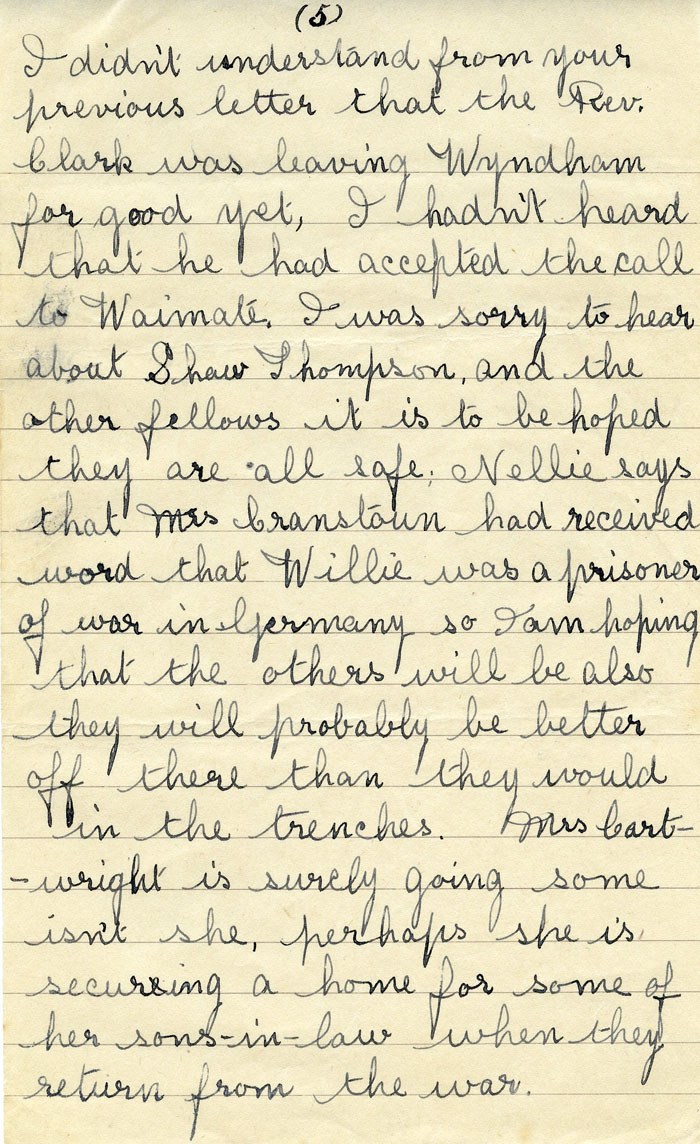 (5)
I didn't understand from your
previous letter that the Rev.
Clark was leaving Wyndham
for good yet, I hadn't heard
that he had accepted the call
to Waimate. I was sorry to hear
about Shaw Thompson, and the
other fellows it is to be hoped
they are all safe; Nellie says
that Mrs Cranstoun had received
word that Willie was a prisoner
of war in Germany so I am hoping
that the others will be also
they will probably be better
off there than they would
in the trenches. Mrs Cart-
-wright is surely going some
isn't she, perhaps she is
securing a home for some of
her sons-in-law when they
return from the war.